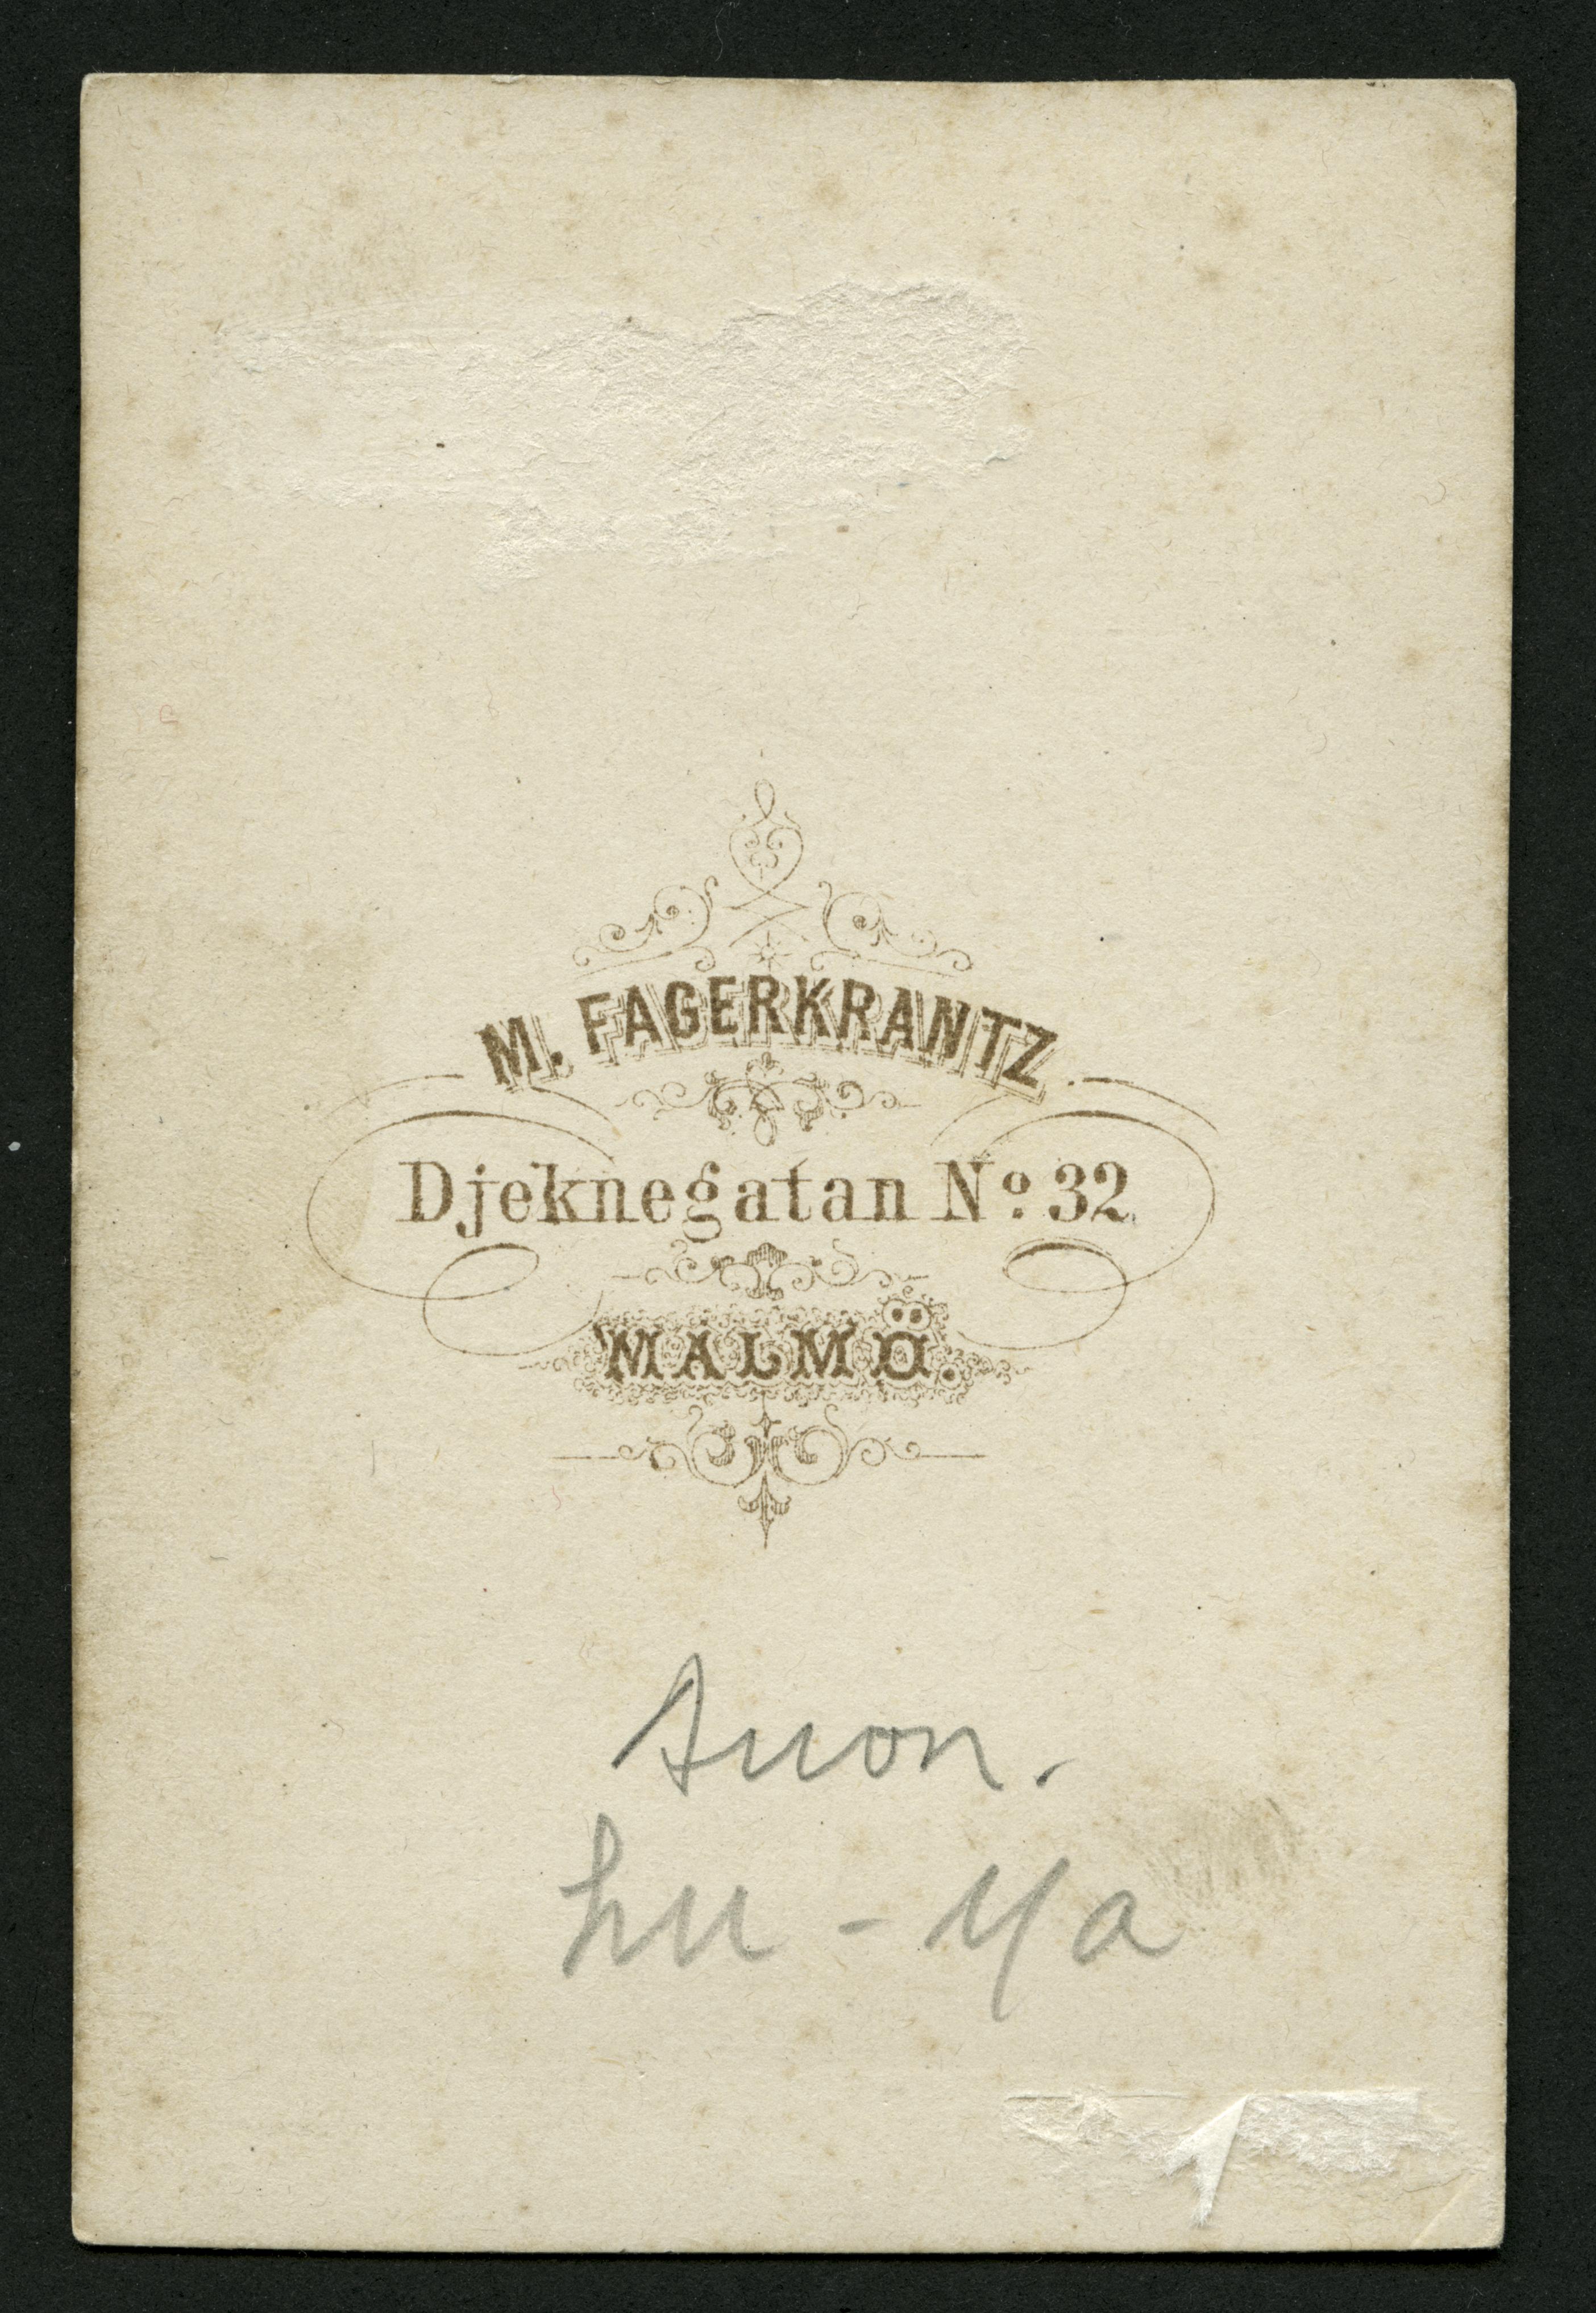 M. FAGERKRANTZ.
Djeknegatan No. 32
MALMÖ.
Anon.